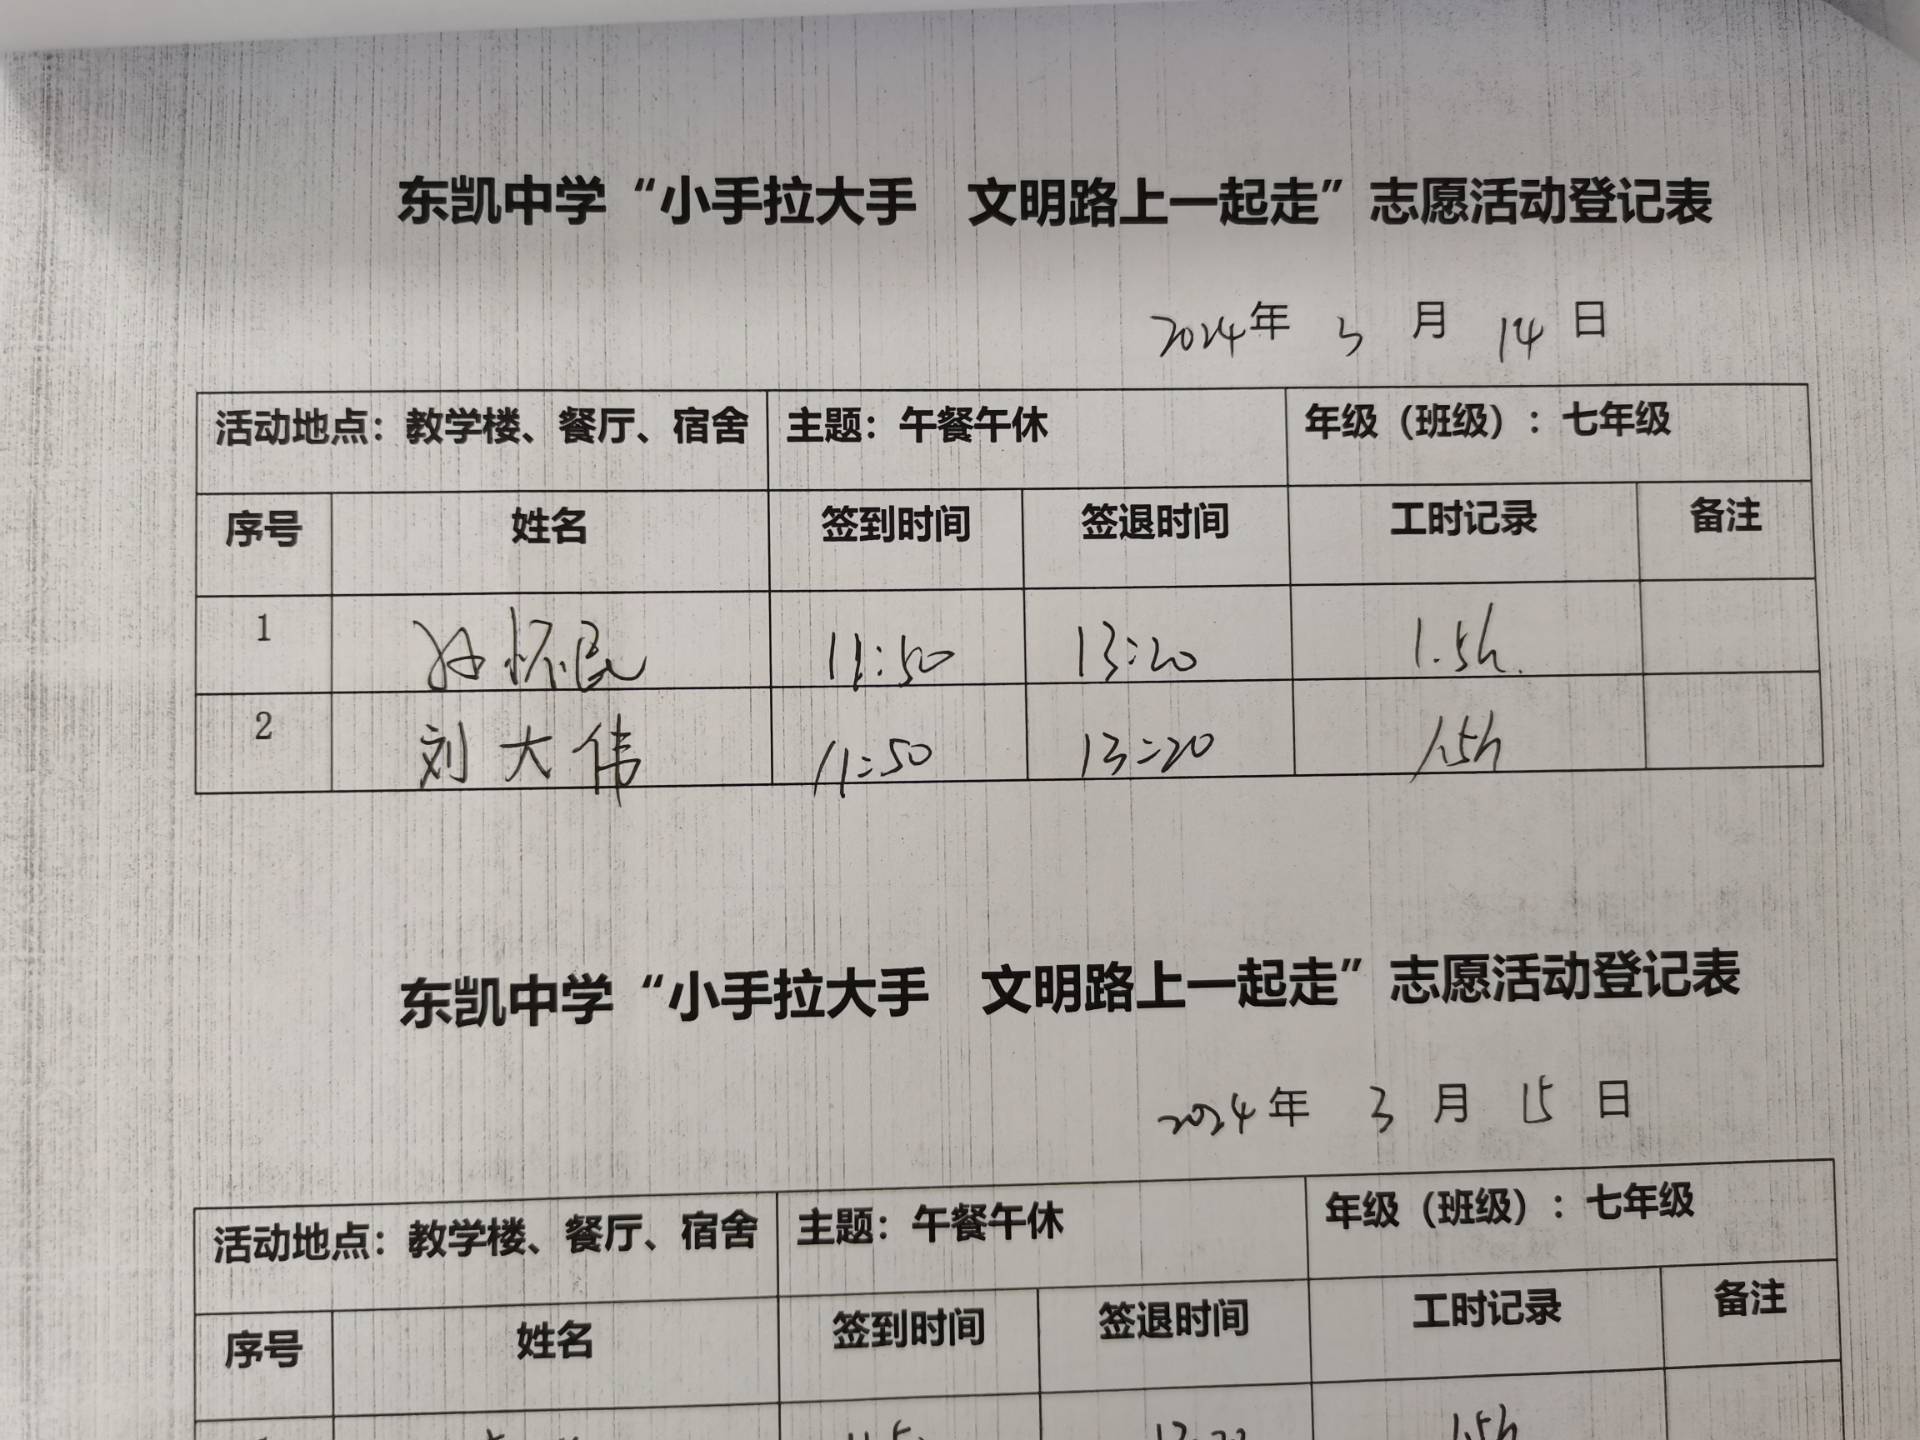 东凯中学“小手拉大手 文明路上一起走”志愿活动登记表
2024年 3 月 14 日
活动地点：教学楼、餐厅、宿舍 主题：午餐午休 年级（班级）：七年级
序号 姓名 签到时间 签退时间 工时记录 备注
1 孙怀民 11:50 13:20 1.5h.
2 刘大伟 11:50 13:20 1.5h
东凯中学“小手拉大手 文明路上一起走”志愿活动登记表
2024年 3 月 15 日
活动地点：教学楼、餐厅、宿舍 主题：午餐午休 年级（班级）：七年级
序号 姓名 签到时间 签退时间 工时记录 备注
1.5h